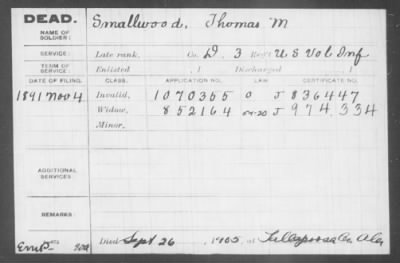 DEAD.
NAME OF SOLDIER: Smallwood, Thomas M
SERVICE: Late rank, Co. D. 3 Reg't U S Vol Inf
TERM OF SERVICE: Enlisted , 1 Discharged , 1
DATE OF FILING. CLASS. APPLICATION NO. LAW. CERTIFICATE NO.
1891 Nov 4 Invalid, 1070355 0 J 836447
Widow, 852164 J 974,334
Minor,
ADDITIONAL SERVICES:
REMARKS:
Died Sept 26, 1905, at Tallapoosa Co, Ala